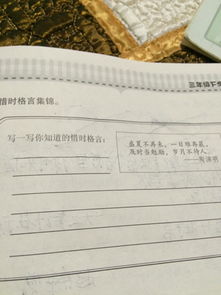 三年级下
惜时格言集锦。
写一写你知道的惜时格言：
盛夏不再来，一日难再晨。
及时当勉励，岁月不待人。
——陶渊明